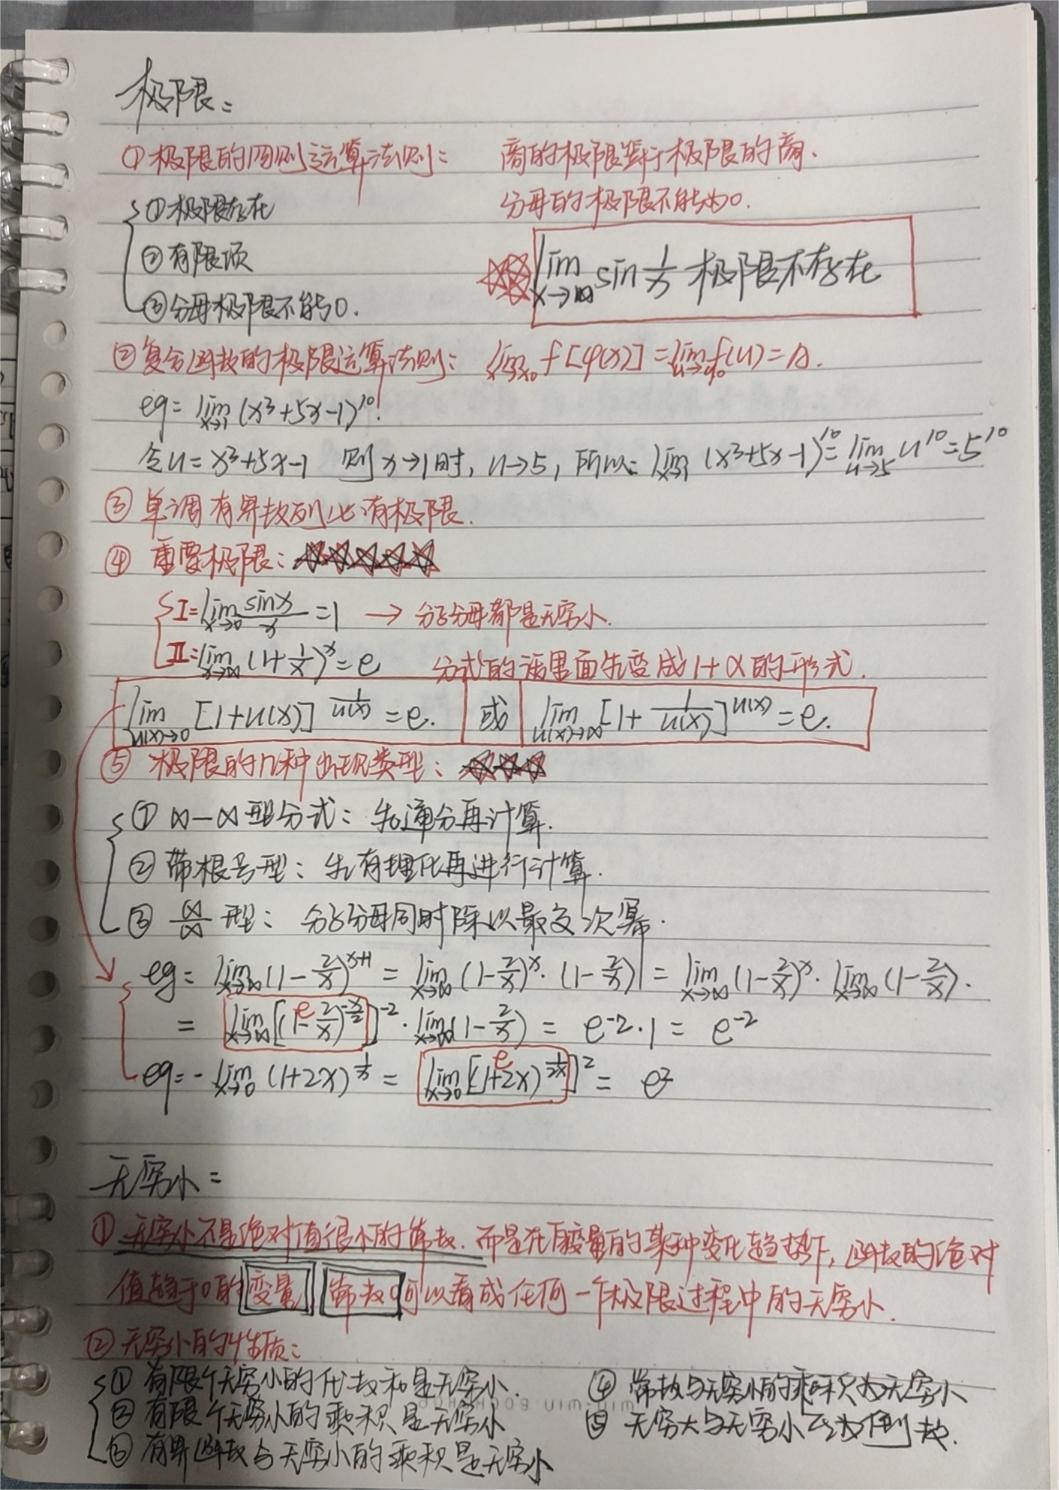 极限：
①极限的四则运算法则： 商的极限等于极限的商.
①极限存在 分母的极限不能为0.
②有限项
lim x→∞ sin 1/x 极限不存在
③分母极限不能为0.
②复合函数的极限运算法则： lim x→x0 f[φ(x)] = lim u→u0 f(u) = A.
eg: lim x→1 (x³+5x-1)¹⁰!
令u=x³+5x-1 则x→1时, u→5, 所以: lim x→1 (x³+5x-1)¹⁰ = lim u→5 u¹⁰ = 5¹⁰
③ 单调有界数列必有极限.
④ 重要极限： ☆☆☆☆☆
I: lim x→0 sinx/x = 1 → 分子分母都是无穷小.
II: lim x→∞ (1+1/x)ˣ = e 分式的话里面先变成1+α的形式.
lim u(x)→0 [1+u(x)]^(1/u(x)) = e. 或 lim u(x)→∞ [1+1/u(x)]^u(x) = e.
⑤ 极限的几种出现类型： ☆☆☆
① ∞-∞型分式：先通分再计算.
② 带根号型：先有理化再进行计算.
③ ∞/∞型： 分子分母同时除以最高次幂.
eg: lim x→∞ (1-2/x)^(x+1) = lim x→∞ (1-2/x)ˣ·(1-2/x) = lim x→∞ (1-2/x)ˣ· lim x→∞ (1-2/x).
= lim x→∞ [(1-2/x)^(-x/2)]⁻² · lim x→∞ (1-2/x) = e⁻²·1 = e⁻²
eg: lim x→0 (1+2x)^(1/x) = lim x→0 [(1+2x)^(1/2x)]² = e²
无穷小：
① 无穷小不是绝对值很小的常数. 而是在自变量的某种变化趋势下, 函数的绝对
值趋于0的变量 常数0可以看成任何一个极限过程中的无穷小.
② 无穷小的性质：
① 有限个无穷小的代数和是无穷小. ④ 常数与无穷小的乘积为无穷小
② 有限个无穷小的乘积是无穷小 ⑤ 无穷大与无穷小互为倒数.
③ 有界函数与无穷小的乘积是无穷小